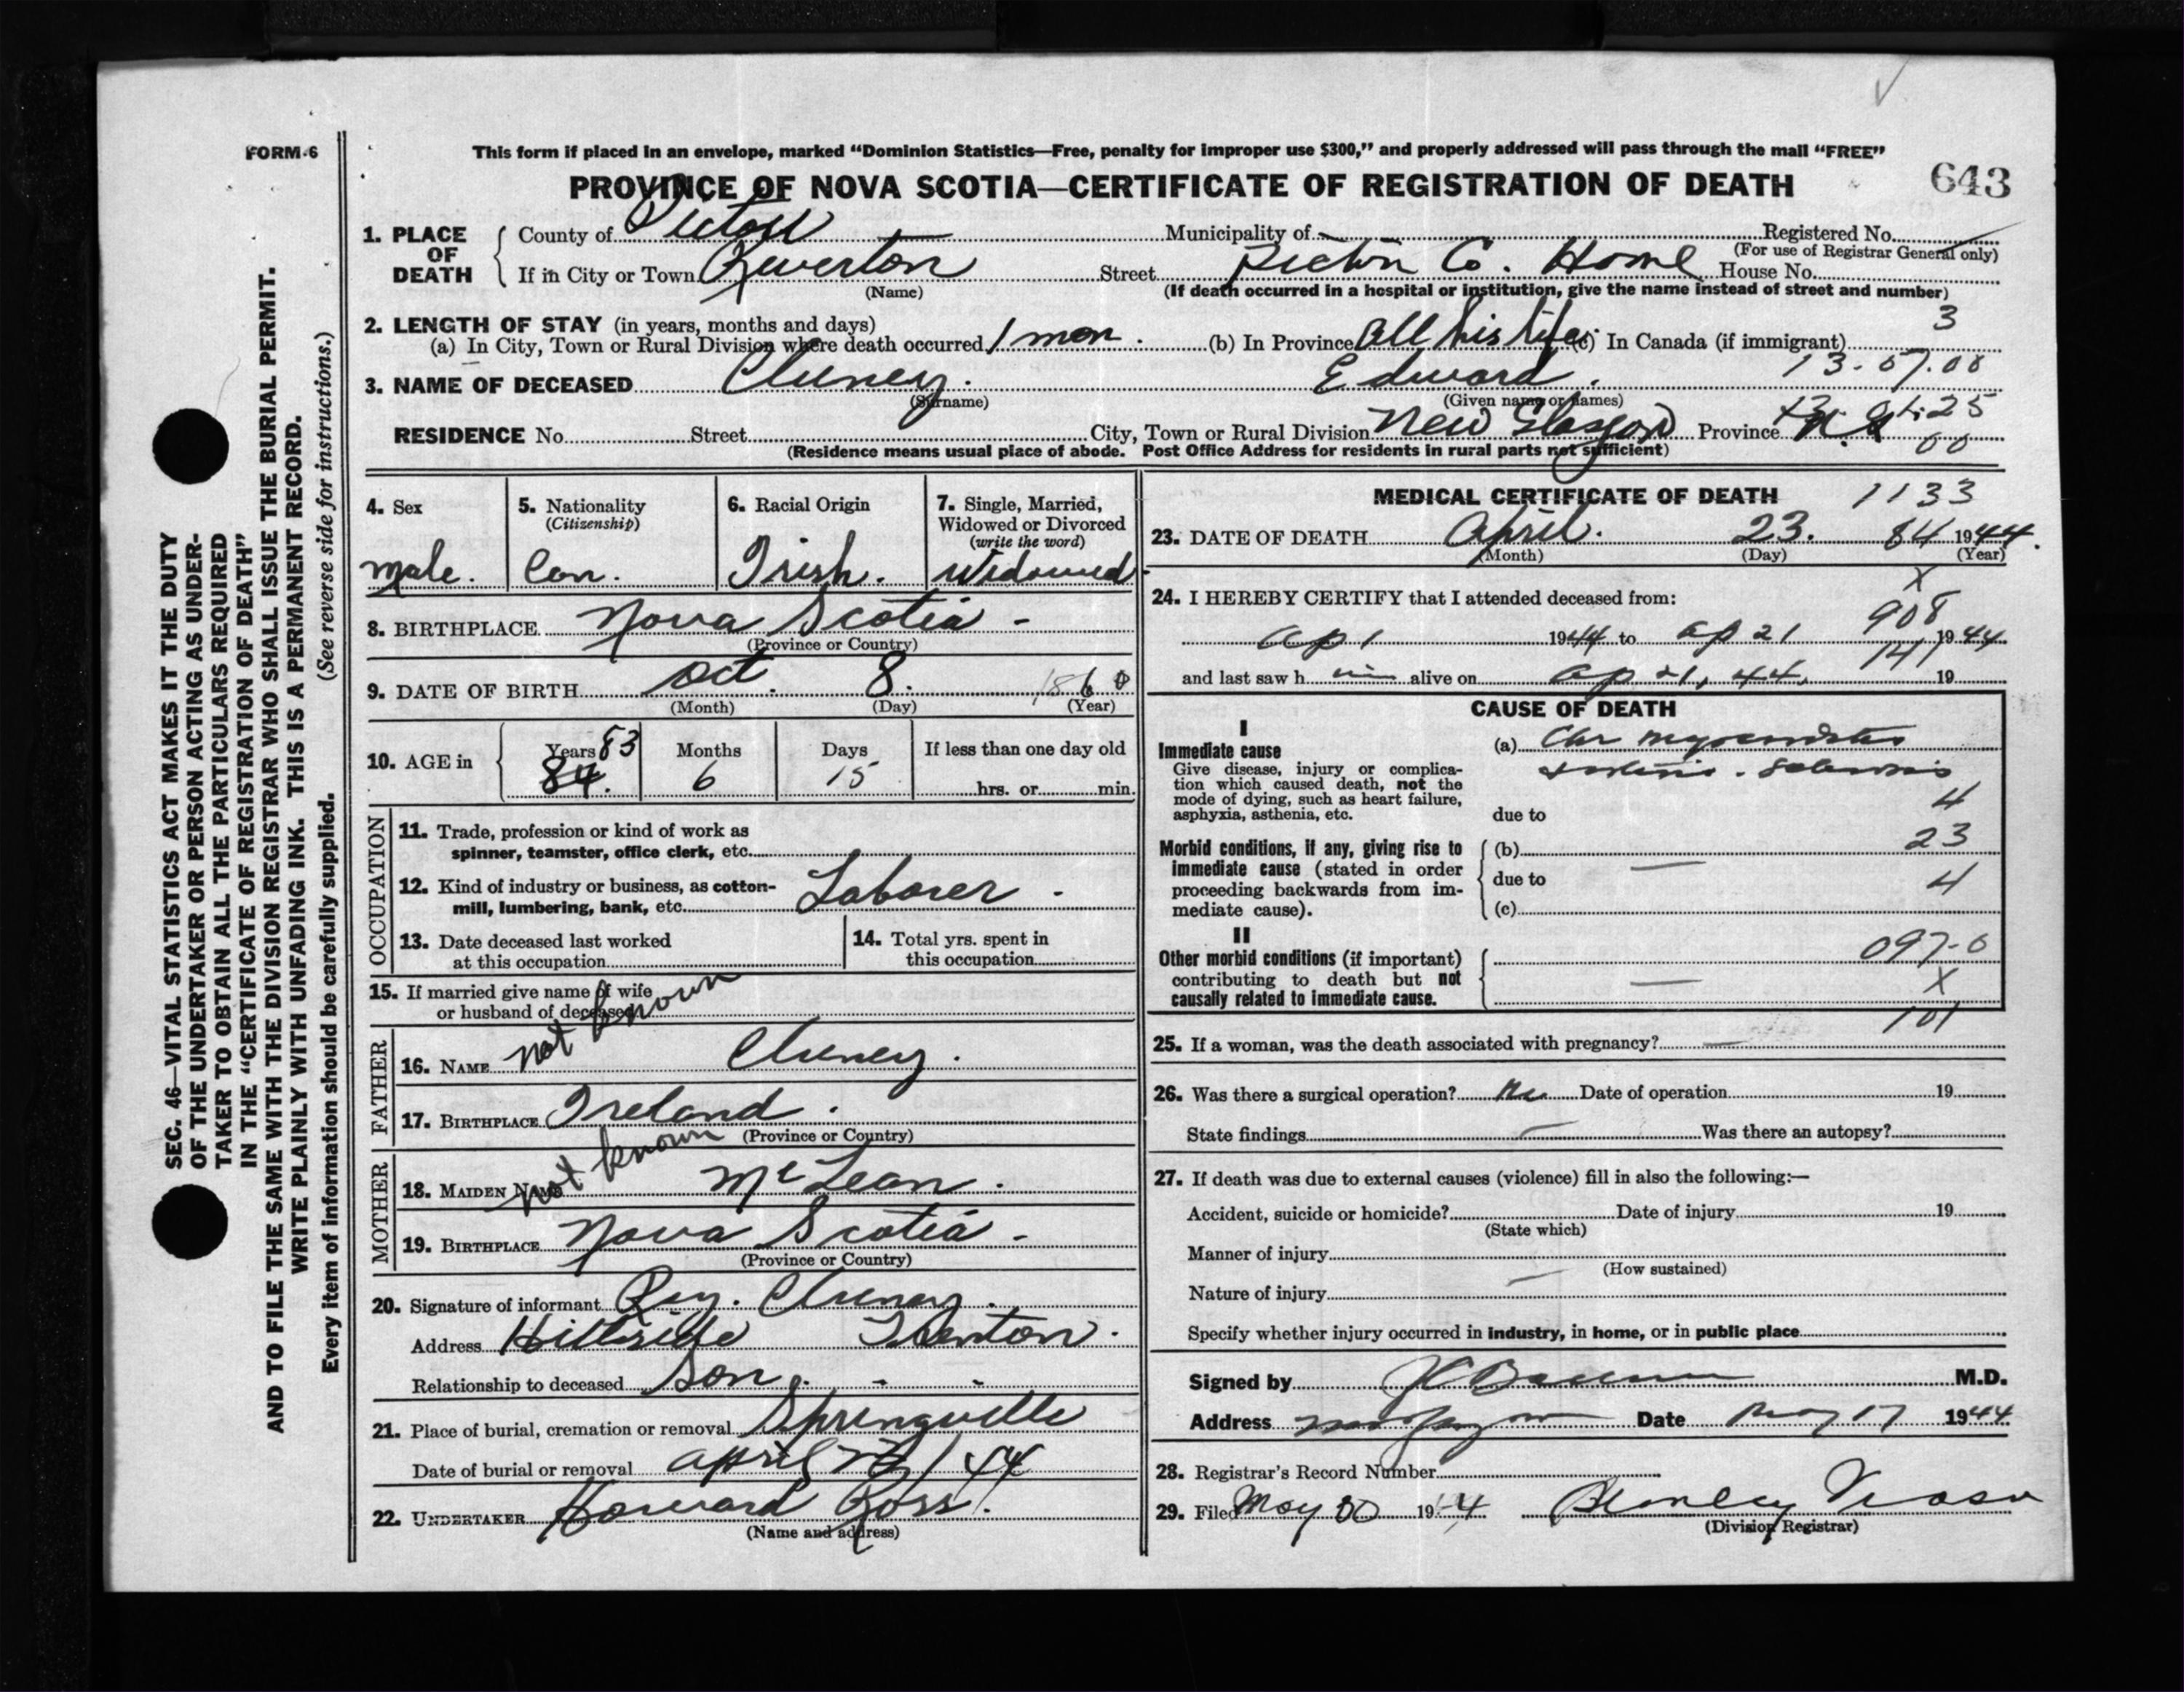 FORM-6
This form if placed in an envelope, marked “Dominion Statistics—Free, penalty for improper use $300,” and properly addressed will pass through the mail “FREE”
PROVINCE OF NOVA SCOTIA—CERTIFICATE OF REGISTRATION OF DEATH 643
1. PLACE OF DEATH { County of Pictou Municipality of — Registered No.
(For use of Registrar General only)
If in City or Town Riverton Street Pictou Co. Home House No.
(Name) (If death occurred in a hospital or institution, give the name instead of street and number)
2. LENGTH OF STAY (in years, months and days) 3
(a) In City, Town or Rural Division where death occurred 1 mon. (b) In Province All his life (c) In Canada (if immigrant)
13-07.00
3. NAME OF DECEASED Cluney. Edward.
(Surname) (Given name or names)
25
RESIDENCE No. Street City, Town or Rural Division New Glasgow Province N.S
00
(Residence means usual place of abode. Post Office Address for residents in rural parts not sufficient)
4. Sex 5. Nationality (Citizenship) 6. Racial Origin 7. Single, Married, Widowed or Divorced (write the word)
male. Can. Irish. Widowed
8. BIRTHPLACE Nova Scotia -
(Province or Country)
9. DATE OF BIRTH Oct. 8. 1860
(Month) (Day) (Year)
10. AGE in { Years 83 Months Days If less than one day old
84. 6 15 hrs. or min.
OCCUPATION
11. Trade, profession or kind of work as
spinner, teamster, office clerk, etc.
12. Kind of industry or business, as cotton-
mill, lumbering, bank, etc. Laborer -
13. Date deceased last worked
at this occupation
14. Total yrs. spent in
this occupation
15. If married give name of wife
or husband of deceased
FATHER
16. NAME not known Cluney.
17. BIRTHPLACE Ireland.
(Province or Country)
MOTHER
18. MAIDEN NAME not known McLean.
19. BIRTHPLACE Nova Scotia -
(Province or Country)
20. Signature of informant Reg. Cluney.
Address Hillside Trenton.
Relationship to deceased Son.
21. Place of burial, cremation or removal Springville
Date of burial or removal April /44
22. UNDERTAKER Howard Ross.
(Name and address)
MEDICAL CERTIFICATE OF DEATH 1133
23. DATE OF DEATH April. 23. 84 1944.
(Month) (Day) (Year)
X
24. I HEREBY CERTIFY that I attended deceased from:
908
Ap 1 1944 to Ap 21 1944
141
and last saw h im alive on Ap 21, 44, 19
CAUSE OF DEATH
I
Immediate cause
Give disease, injury or complica-
tion which caused death, not the
mode of dying, such as heart failure,
asphyxia, asthenia, etc.
(a) Chr myocarditis
4
due to
Morbid conditions, if any, giving rise to
immediate cause (stated in order
proceeding backwards from im-
mediate cause).
(b) 23
due to — 4
(c)
II
Other morbid conditions (if important)
contributing to death but not
causally related to immediate cause.
097-0
— X
101
25. If a woman, was the death associated with pregnancy? —
26. Was there a surgical operation? no Date of operation 19
State findings — Was there an autopsy?
27. If death was due to external causes (violence) fill in also the following:—
Accident, suicide or homicide? Date of injury 19
(State which)
Manner of injury
(How sustained)
Nature of injury —
Specify whether injury occurred in industry, in home, or in public place
Signed by M.D.
Address New Glasgow Date May 17 1944
28. Registrar's Record Number
29. Filed May 1944
(Division Registrar)
SEC. 46—VITAL STATISTICS ACT MAKES IT THE DUTY
OF THE UNDERTAKER OR PERSON ACTING AS UNDER-
TAKER TO OBTAIN ALL THE PARTICULARS REQUIRED
IN THE “CERTIFICATE OF REGISTRATION OF DEATH”
AND TO FILE THE SAME WITH THE DIVISION REGISTRAR WHO SHALL ISSUE THE BURIAL PERMIT.
WRITE PLAINLY WITH UNFADING INK. THIS IS A PERMANENT RECORD.
Every item of information should be carefully supplied. (See reverse side for instructions.)